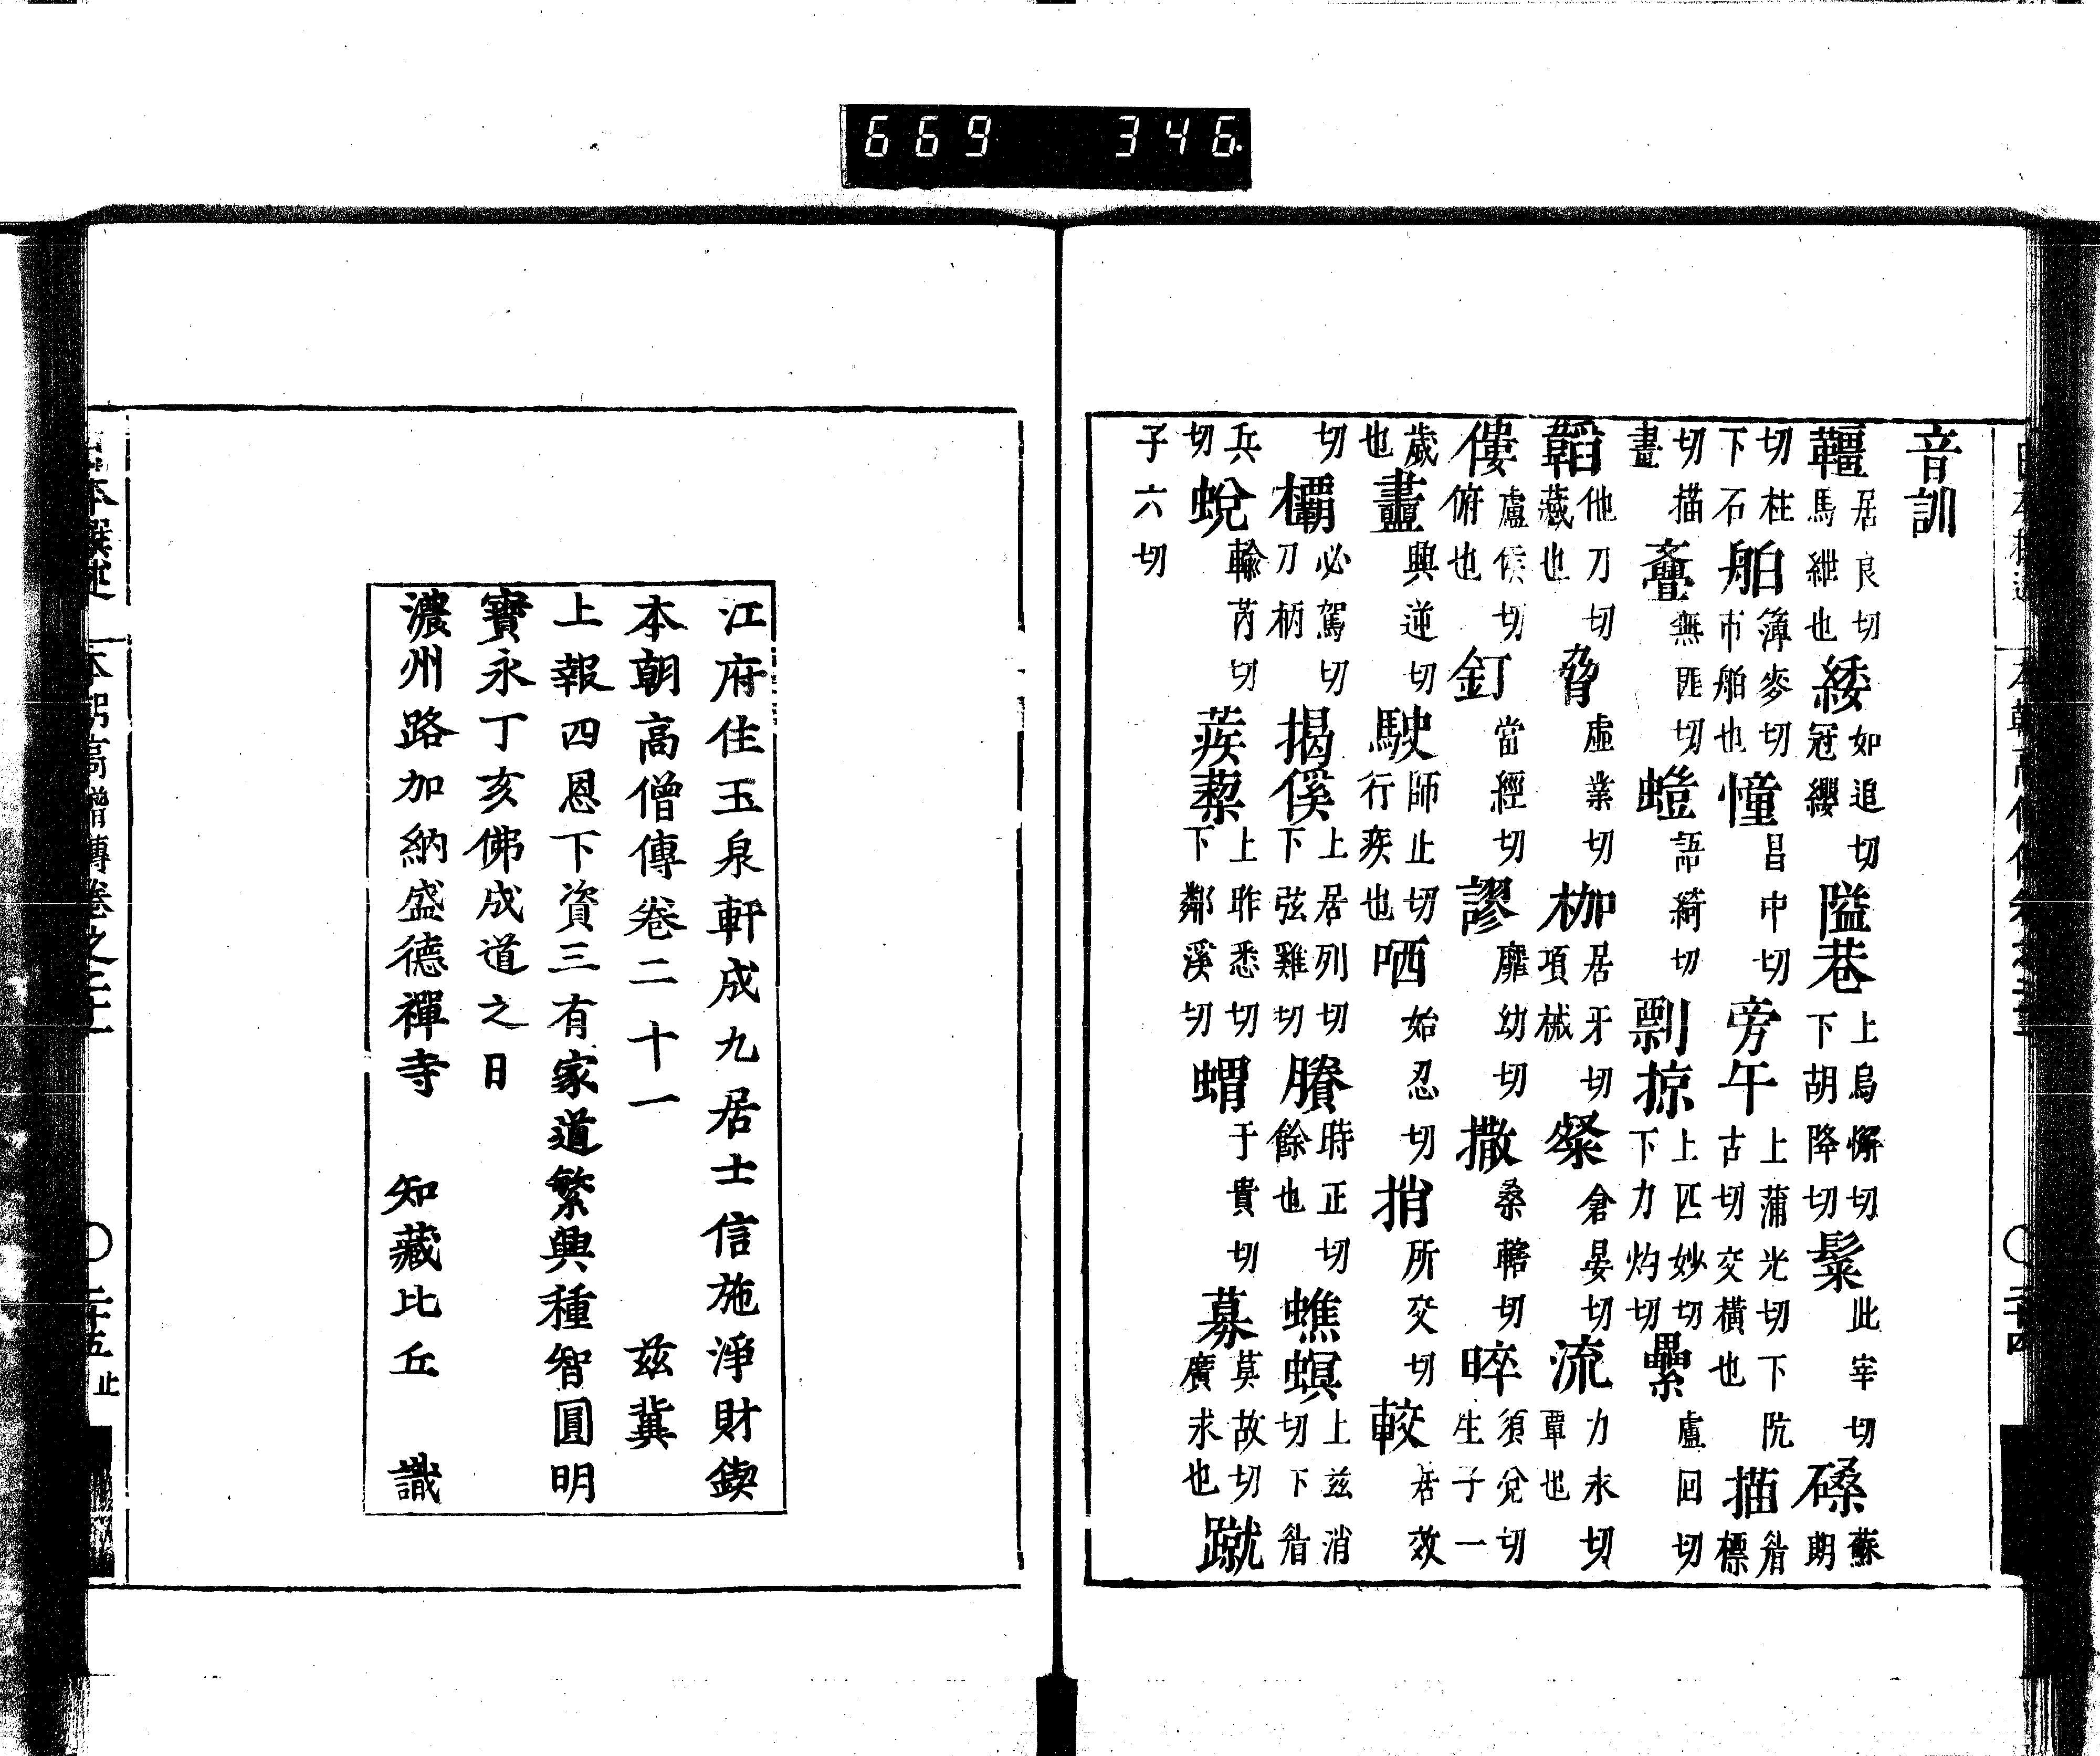 669 346
音訓
韁居良切馬紲也緌如追切冠纓隘巷上烏懈切下胡降切此宰切磉蘇朗
切柱下石舶簿麥切市舶也憧昌中切旁午上蒲光切下阮古切交橫也描眉標
切描畫亹無匪切螘語綺切剽掠上匹妙切下力灼切纍盧回切
韜他刀切藏也脅虛業切枷居牙切項械粲倉晏切流力永切覃也
僂盧侯切俯也釘當經切謬靡幼切撒桑轄切晬須兌切生子一
歲也衋興逆切駛師止切行疾也哂始忍切捎所交切較居效
切欛必駕切刀柄揭傒上居列切下弦雞切賸時正切餘也蟭螟上茲消切下眉
兵切蛻輸芮切蒺蔾上昨悉切下鄰溪切蝟于貴切募莫故切廣求也蹴
子六切
江府住玉泉軒成九居士信施淨財鍥
本朝高僧傳卷二十一　茲冀
上報四恩下資三有家道繁興種智圓明
寶永丁亥佛成道之日
濃州路加納盛德禪寺　知藏比丘　識
本撰述　本朝高僧傳卷之二十一　〇二十五止